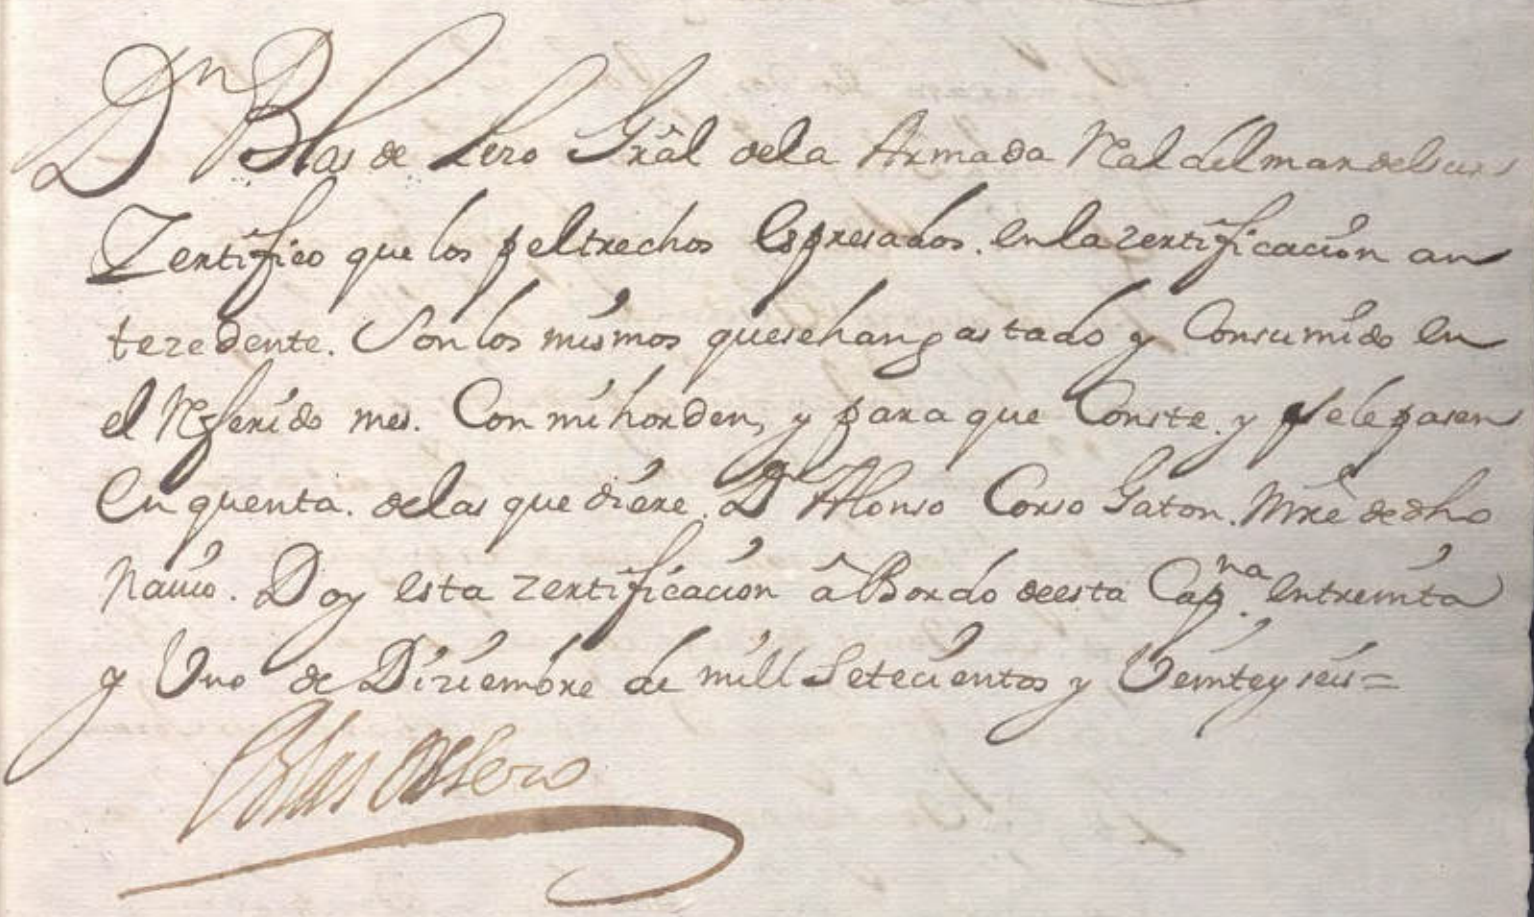 Dn Blas de Lezo Grâl dela Armada Real del mar del sur
Zertifico que los peltrechos Espresados. en la zertificacion an
tezedente. Son los mismos que se han gastado y Consumido en
el Referido mes. Con mi horden, y para que Conste. y se le pasen
En quenta. de las que diere. Dn Alonso Corso Gaton. Mre de dho
Navio. Doy esta zertificacion â Bordo de esta Capna. en treinta
y Uno de Diziembre de mill Setecientos y Veinte y seis=
Blas de Lezo